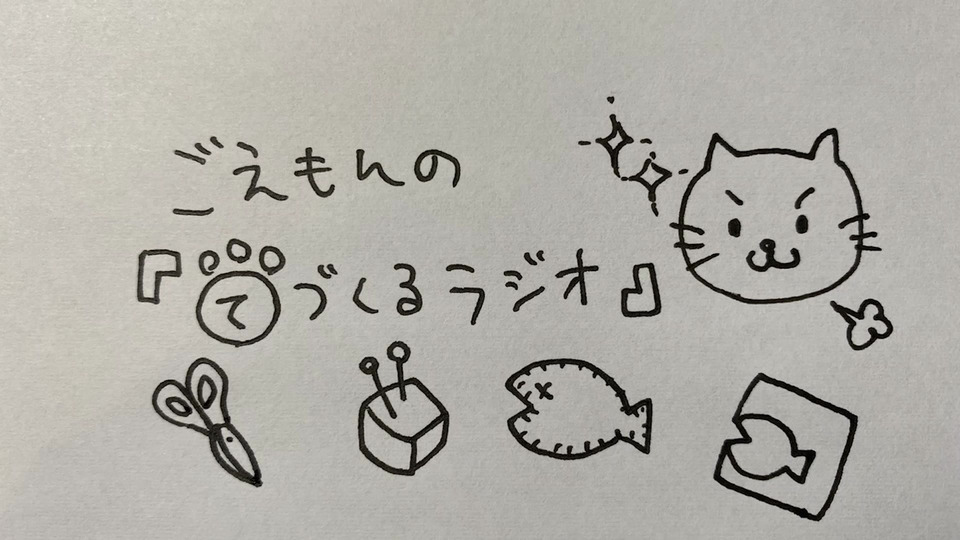 ごえもんの
『てづくるラジオ』